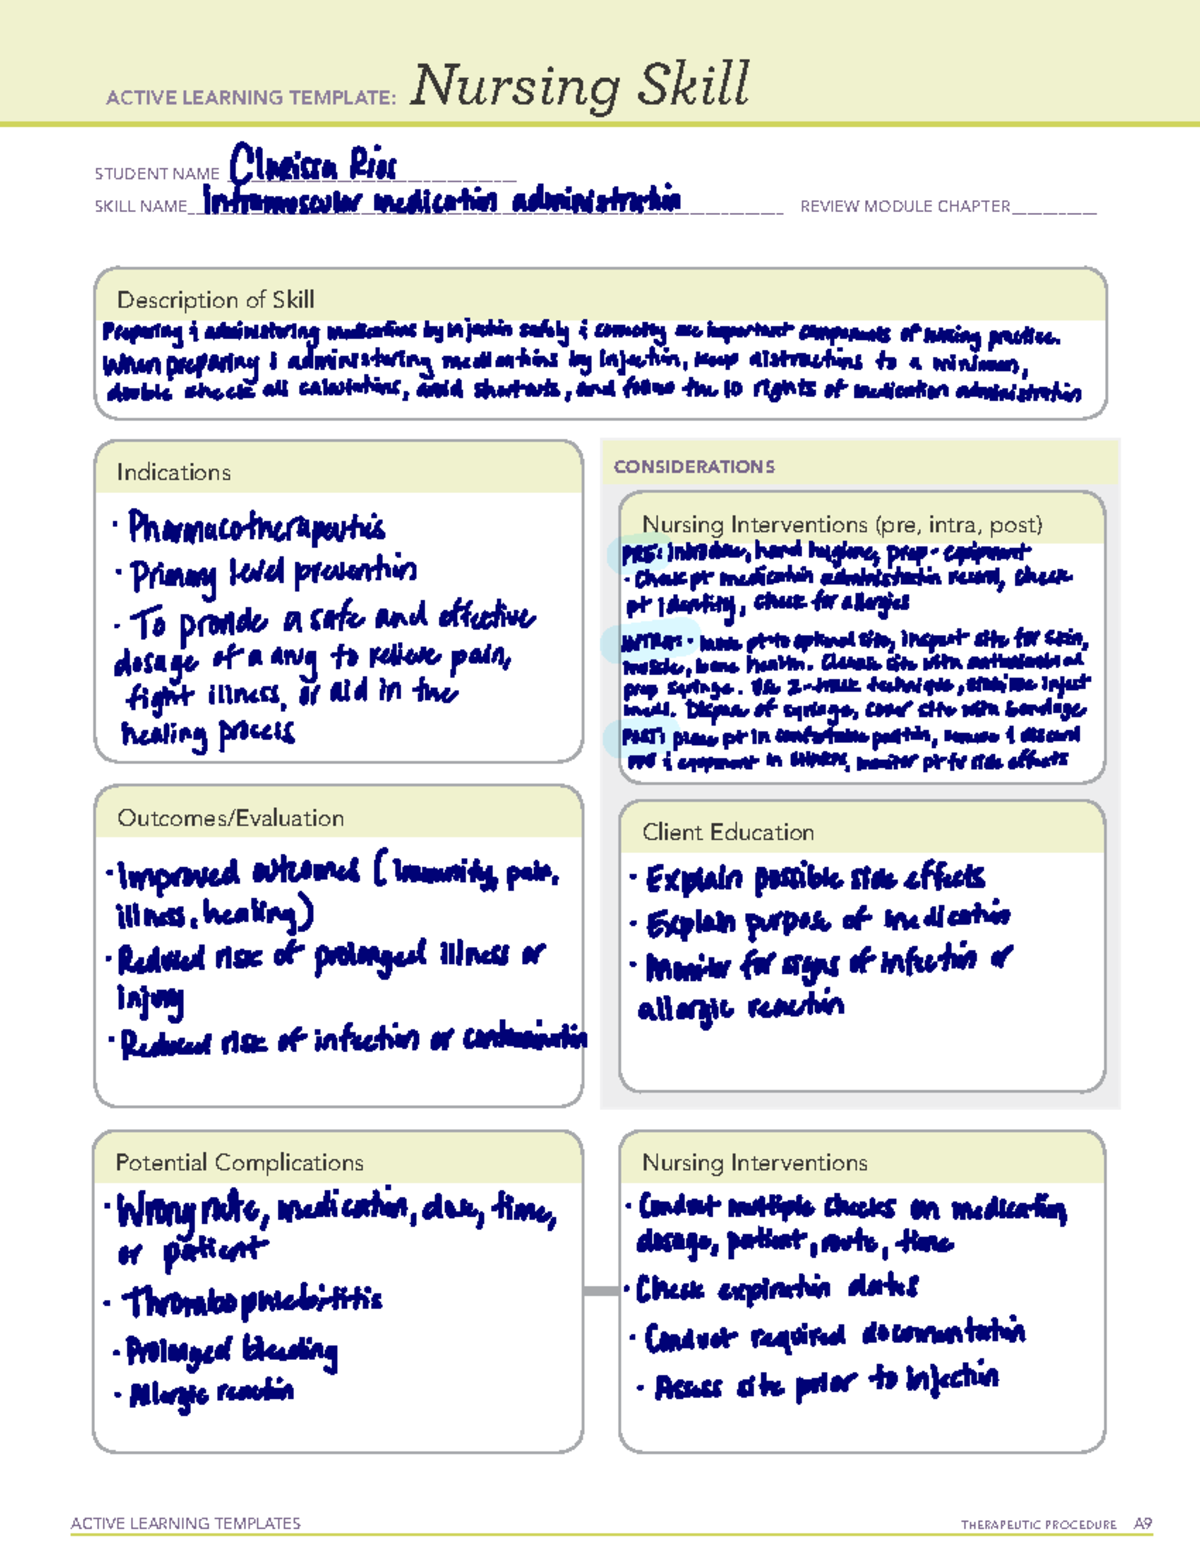 ACTIVE LEARNING TEMPLATE: Nursing Skill
STUDENT NAME Clarissa Rios
SKILL NAME Intramuscular medication administration REVIEW MODULE CHAPTER
Description of Skill
Preparing & administering medications by injection safely & correctly are important components of nursing practice.
When preparing & administering medications by injection, keep distractions to a minimum,
double check all calculations, avoid shortcuts, and follow the 10 rights of medication administration
Indications
· Pharmacotherapeutics
· Primary level prevention
· To provide a safe and effective
dosage of a drug to relieve pain,
fight illness, or aid in the
healing process
CONSIDERATIONS
Nursing Interventions (pre, intra, post)
PRE: Introduce, hand hygiene, prep equipment
· Check pt medication administration record, check
pt identity, check for allergies
INTRA: · pt to optimal site, inspect site for skin,
muscle, bone health. Cleanse site with and
prep syringe. Use Z-track technique, inject
meds. Dispose of syringe, cover site with bandage
POST: place pt in comfortable position, remove & discard
PPE & equipment in, monitor pt for side effects
Outcomes/Evaluation
· Improved outcomes (immunity, pain,
illness, healing)
· Reduced risk of prolonged illness or
injury
· Reduced risk of infection or contamination
Client Education
· Explain possible side effects
· Explain purpose of medication
· Monitor for signs of infection or
allergic reaction
Potential Complications
· Wrong route, medication, dose, time,
or patient
· Thrombophlebititis
· Prolonged bleeding
· Allergic reaction
Nursing Interventions
· Conduct multiple checks on medication,
dosage, patient, route, time
· Check expiration dates
· Conduct required documentation
· Assess site prior to injection
ACTIVE LEARNING TEMPLATES THERAPEUTIC PROCEDURE A9